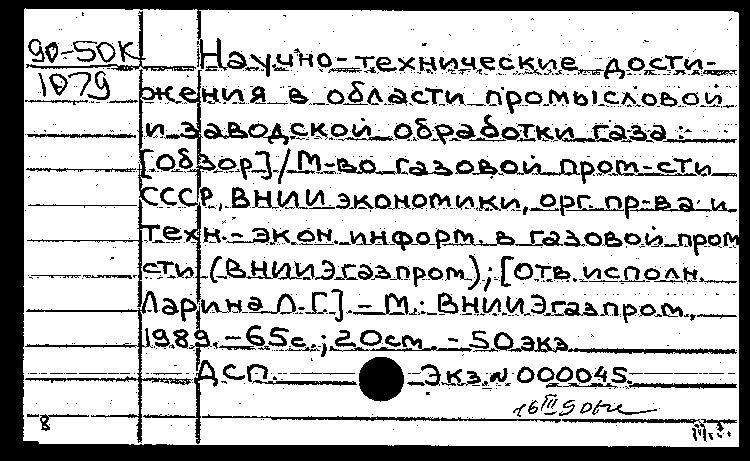 90-50К
1079
Научно-технические дости-
жения в области промысловой
и заводской обработки газа :
[Обзор] / М-во газовой пром-сти
СССР, ВНИИ экономики, орг. пр-ва и
техн.-экон. информ. в газовой пром
сти (ВНИИЭгазпром); [Отв. исполн.
Ларина Л.Г.]. - М.: ВНИИЭгазпром,
1989. - 65с.; 20см. - 50 экз.
ДСП. Экз. N 000045.
16 III 90
8